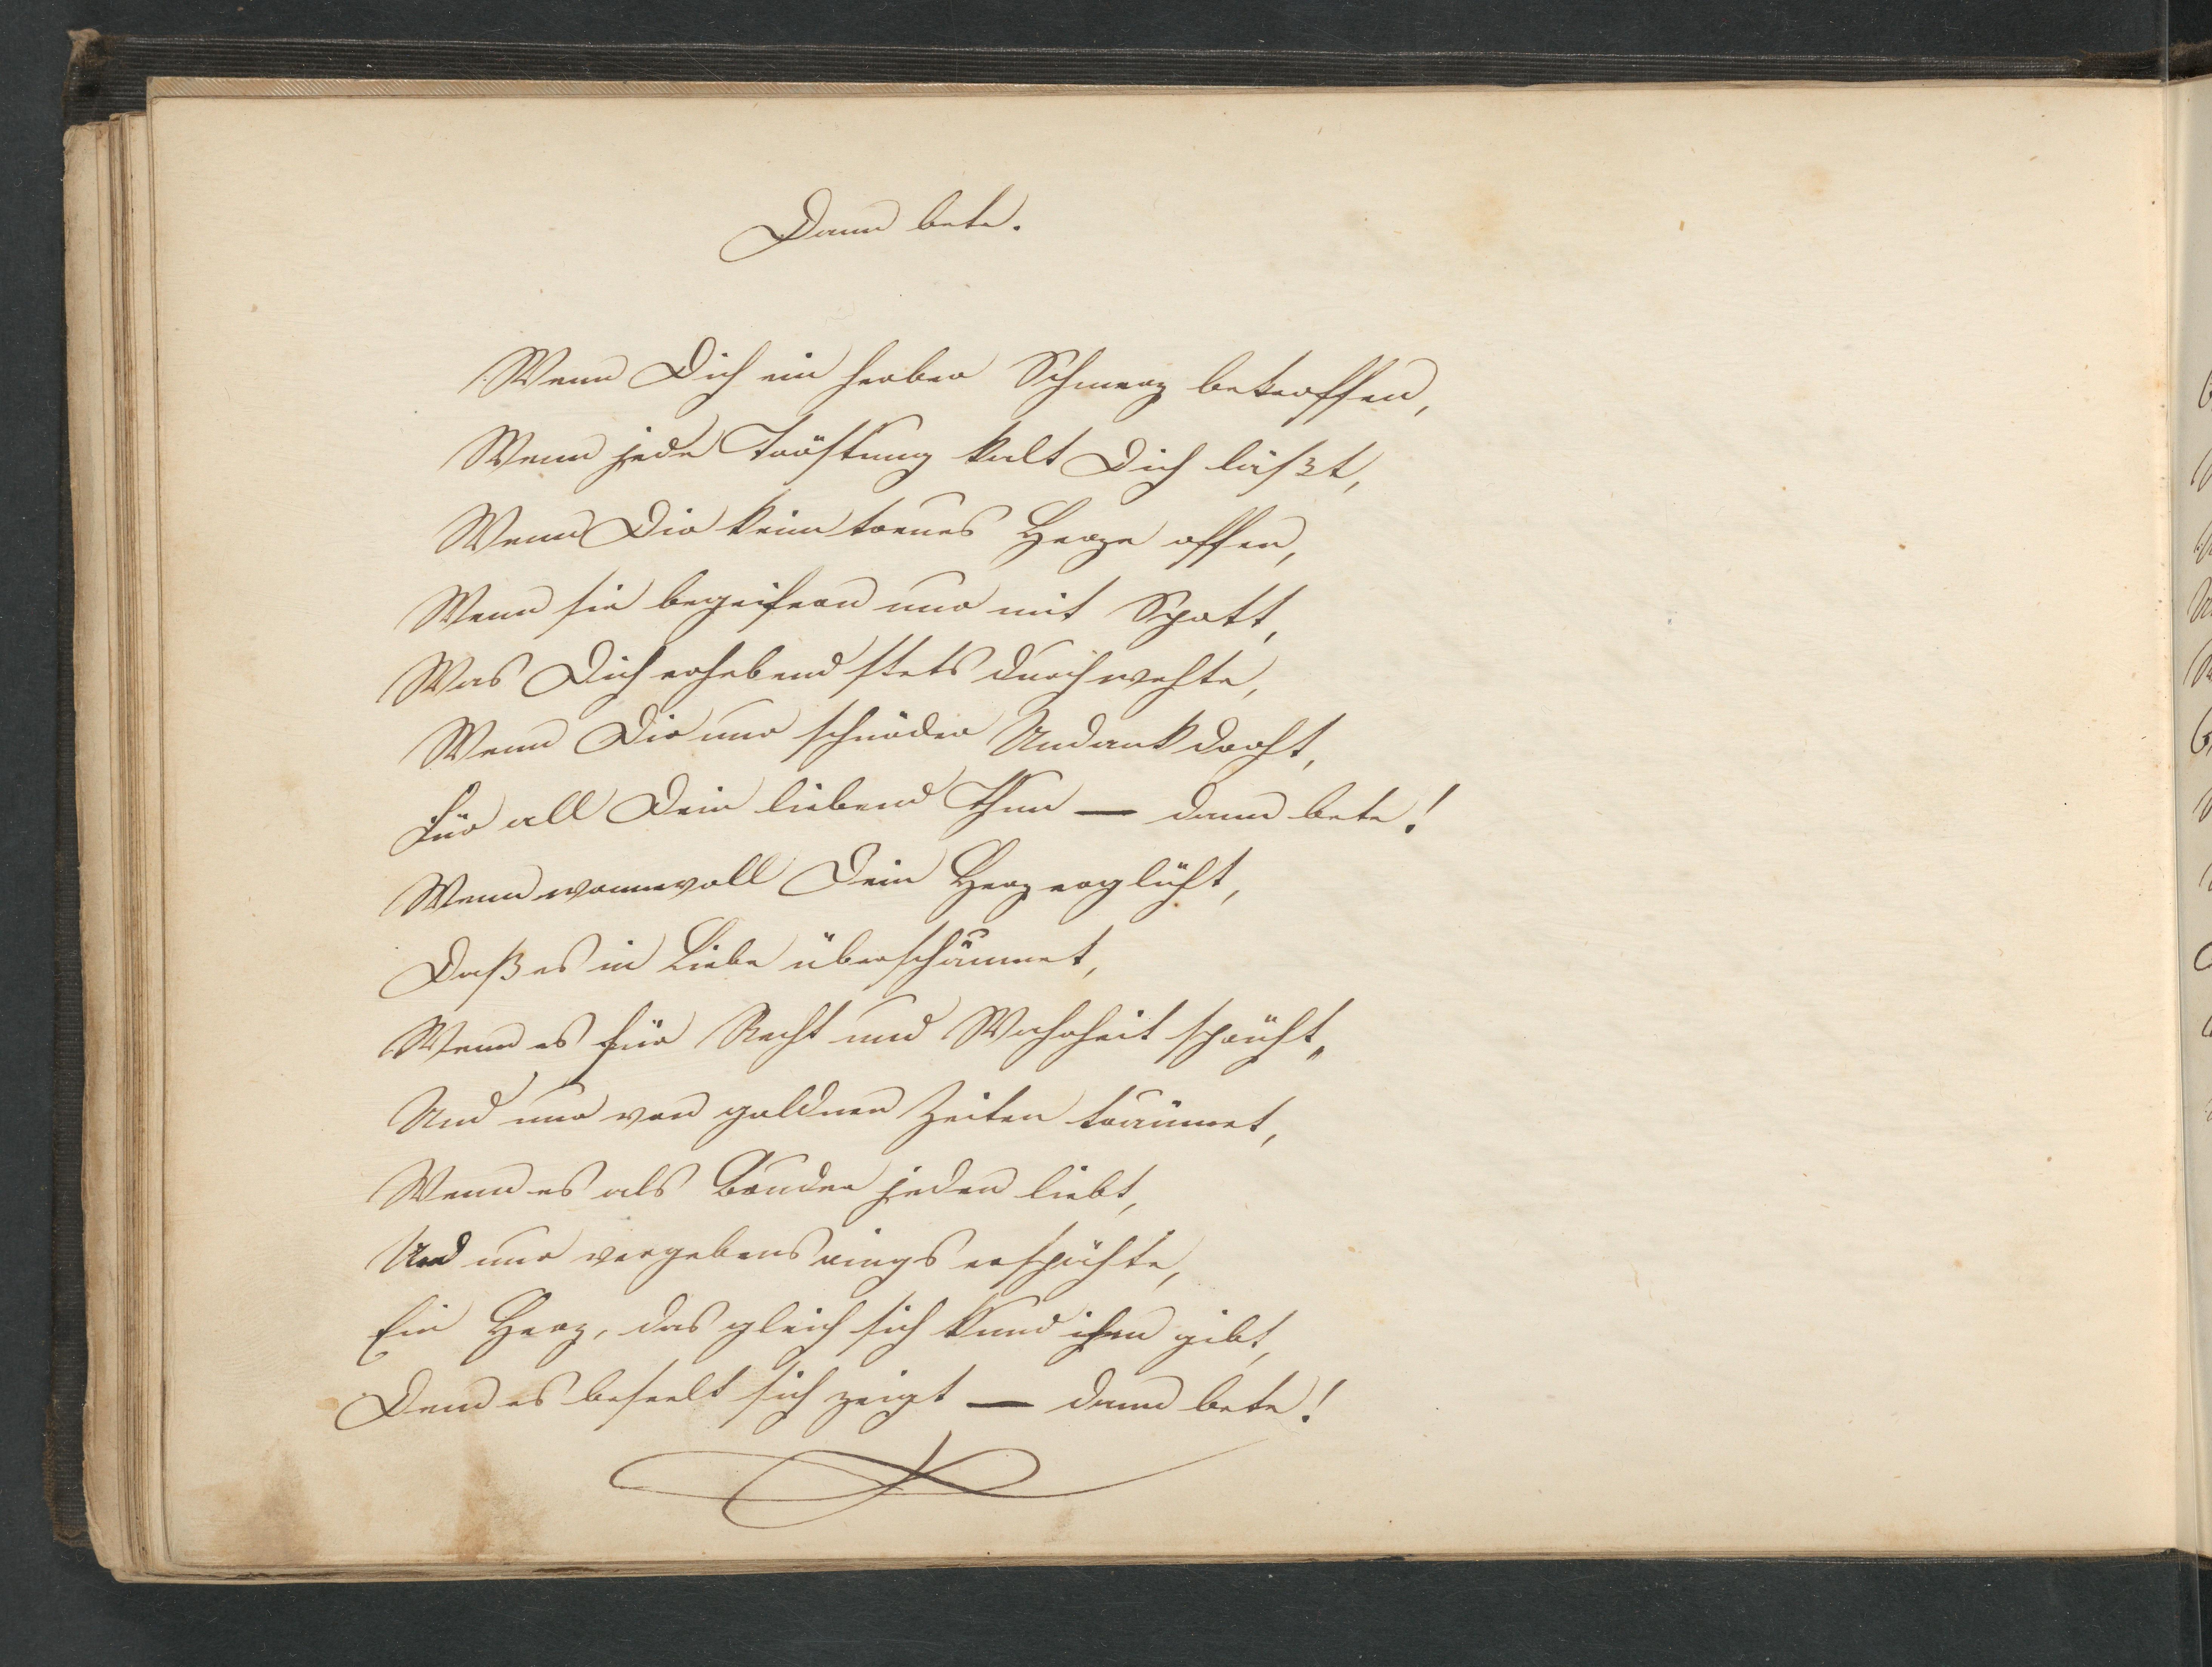 Dann bete.
Wenn Dich ein herber Schmerz betroffen,
Wenn jede Tröstung kalt Dich läßt,
Wenn Dir kein treues Herze offen,
Wenn sie begeifern nur mit Spott,
Was Dich erhebend stets durchwehte,
Wenn Dir nur schnöder Undank droht,
Für all Dein liebend Thun — dann bete!
Wenn wonnevoll Dein Herz erglüht,
Daß es in Liebe überschäumet,
Wenn es für Recht und Wahrheit sprüht,
Und nur von goldnen Zeiten träumet,
Wenn es als Bruder jeden liebt,
Und nur vergebens rings erspähte,
Ein Herz, das gleich sich kund ihm gibt,
Dem es beseelt sich zeigt — dann bete!